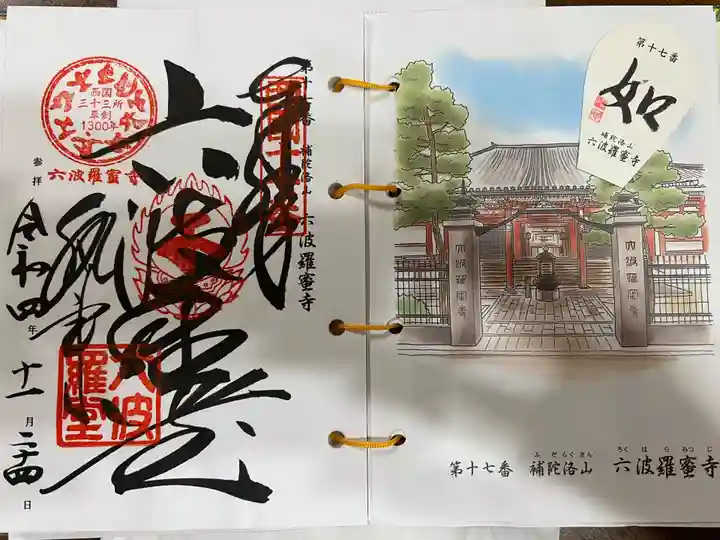 奉拝
第十七番 補陀洛山 六波羅蜜寺
西国
三十三所
草創
1300年
参拝
六波羅蜜寺
六波羅堂
令和四年十一月二十四日
第十七番
如
補陀洛山
六波羅蜜寺
六波羅蜜寺
六波羅蜜寺
ふだらくさん ろくはらみつじ
第十七番 補陀洛山 六波羅蜜寺